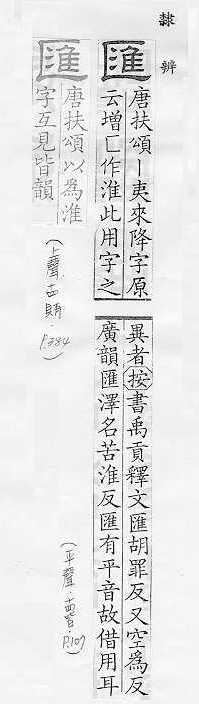 隸辨
匯
唐扶頌丨夷來降字原
云增匚作淮此用字之
異者按書禹貢釋文匯胡罪反又空為反
廣韻匯澤名苦淮反匯有平音故借用耳
(平聲·十四皆 P.107)
匯
唐扶頌以為淮
字互見皆韻
(上聲·十四賄·P.384)